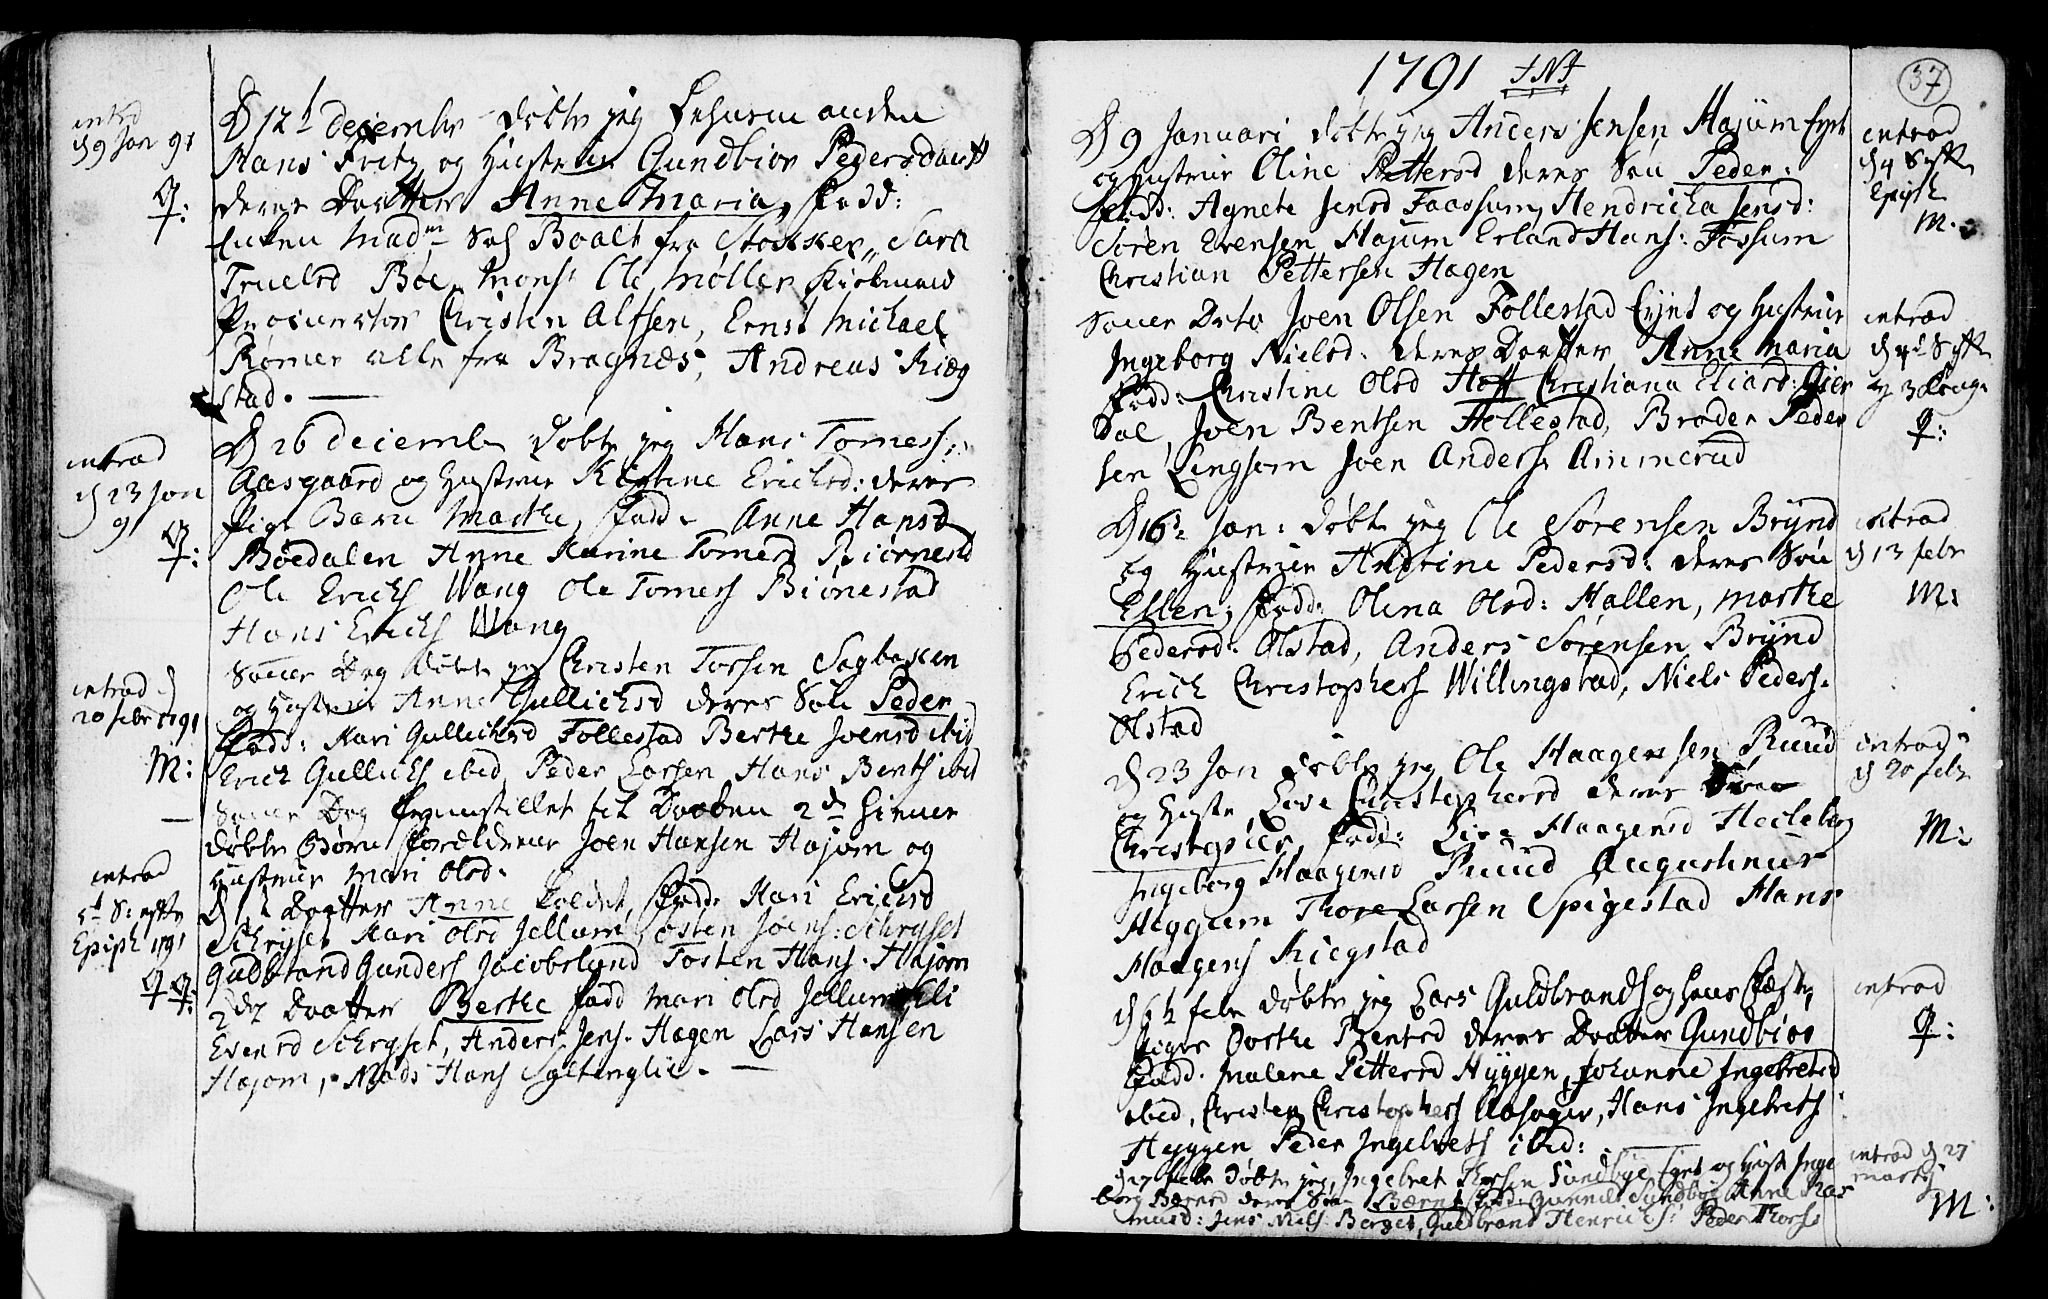 introd
d 9 Jan 91
Q:
D 12t decembr døbte jeg
Hans Fritz og Hustrue Gundbior Pedersdaatt
deres Daatter Anne Maria, Fadd:
Enken Madm Sal Boalt fra Stokker, Sara
Truelsd Böe, Mons: Ole Møller Kiøbmand
Procurator Christen Alfsen, Ernst Michael
Rømer alle fra Bragnæs, Andreas Kiæg
stad. —
introd
d 23 Jan
91
Q:
D 26 decembr døbte jeg Hans Tomess:
Aasgaard og Hustrue Kirstine Erichsd: deres
Pige Barn Marthe, Fadd: Anne Hansd
Böedalen Anne Karine Tomesd Biørnestd
Ole Erichs Wang Ole Tomess Biönestad
Hans Erichs Wang
introd d
20 febr 1791
M:
Samer Dag døbte jeg Christen Torsen Sagbaken
og Hustrue Anne Gullichsd deres Søn Peder
Fadd: Kari Gullichsd Follestad Berthe Joensd ibid
Erich Gullichs ibid, Peder Larsen, Hans Bents ibid
Samer Dag fremstillet til Daaben 2de hiemme
døbte Børn Forældrene Joen Hansen Hajom og
Hustrue Mari Olsd.
introd
Epiph 1791
Q Q:
D 1t Daatter Anne kaldet, Fadd: Kari Erichsd
Schryset Kari Olsd Jellum, Osten Joens: Schryset
Guldbrand Gunders Jacobslund Tosten Hans. Hajom
2den Daatter Berthe Fadd Mari Olsd Jellum Eli
Evensd Schryset, Anders Jens. Hagen Lars Hansen
Hajom, Mads Hans Sæltenglie. —
1791 JNJ
37
D 9 Januari døbte jeg Anders Jensen Hajum Eynt
og Hustrue Oline Pettersd deres Søn Peder:
Fadd: Agnete Jensd Faassum, Hendricha Jensd:
Sören Evensen Hajum Erland Hans: Fossum
Christian Pettersen Hagen
introd
Epiph
M.
Samer Dato Joen Olsen Follestad Eynt og Hustrue
Ingeborg Nielsd: deres Daatter Anne Maria
Fadd: Christine Olsd Hoff Christiana Eliasd: Gier
dal, Joen Bentsen Hellestad, Broder Peder
sen Lingsom Joen Anderss Ammerud
introd
Q:
D 16d Jan: døbte jeg Ole Sørensen Brynd
og Hustrue Andrine Pedersd: deres Søn
Ellen, Fadd: Olena Olsd: Hallen, Marthe
Pedersd: Olstad, Anders Sørensen Brynd
Erich Christophers Willingstad, Niels Peders.
Olstad
introd
d 13 febr
M:
D 23 Jan døbte jeg Ole Haagensen Ruud
og Hustr. Live Christophersd deres Søn
Christopher, Fadd: Live Haagensd
Ingeborg Haagensd Ruud Augustinus
Heggum Thore Larsen Spigestad Hans
Haagens Kiegstad
introd
d 20 febr
M:
D 6t febr døbte jeg Lars Guldbrands og hans Fæste
Piger Dorthe Bentsd deres Daatter Gundbior
Fadd. Malene Pettersd Hyggen, Johanne Ingebretsd
ibid, Christen Christophers Aasager, Hans Ingebrets
Heggen Peder Ingebrets ibid:
introd
Q:
D 27 febr døbte jeg, Ingebret Thorsen Sundbye Eynt og Hustr Inge
borg Berntsd deres Søn Bærnt, Fadd: Gunnild Sundbye Anne Ras
musd: Jens Niels Berget, Guldbrand Henrichs: Peder Thorss
introd d 27
martij
M: